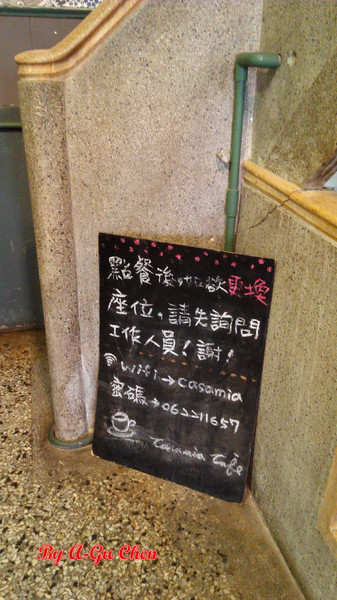 點餐後,如欲更換
座位,請先詢問
工作人員!謝!
wifi→casamia
密碼→062211657
Casamia Cafe
By A-Gu Chen